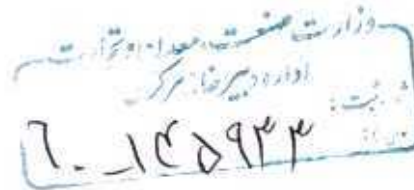 وزارت صنعت، معدن و تجارت
اداره دبیرخانه مرکزی
ثبت:
۶۰-۱۴۵۹۳۳